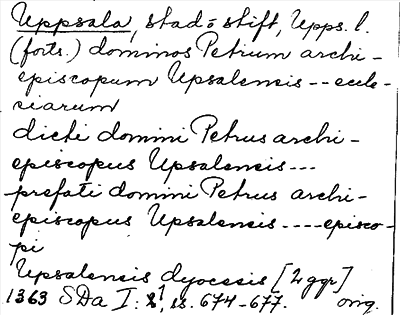 Uppsala, stad o stift, Upps. l.
(forts.) dominos Petrum archi-
episcopum Upsalensis -- eccle-
siarum
dicti domini Petrus archi-
episcopus Upsalensis ---
prefati domini Petrus archi-
episcopus Upsalensis ---- episco-
pi
Upsalensis dyocesis [2 ggr]
1363 SDa I: 1, s. 674-677. orig.